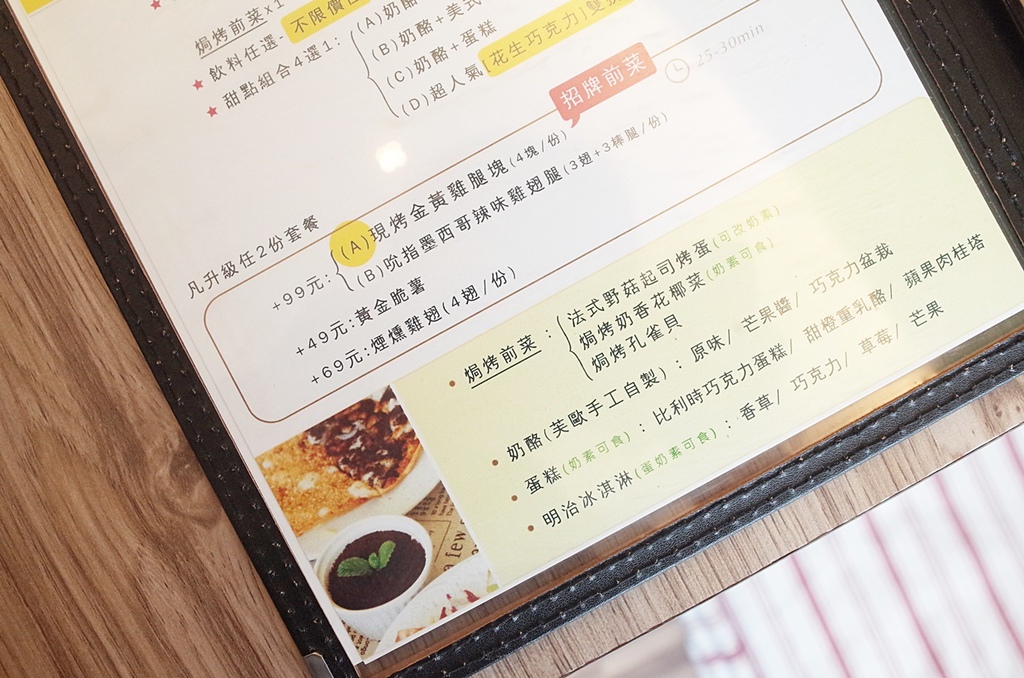 焗烤前菜x1
飲料任選 不限價
甜點組合4選1：
(A)奶酪
(B)奶酪+美式
(C)奶酪+蛋糕
(D)超人氣[花生巧克力]雙
招牌前菜
25-30min
凡升級任2份套餐
+99元：
(A)現烤金黃雞腿塊(4塊/份)
(B)吮指墨西哥辣味雞翅腿(3翅+3棒腿/份)
+49元：黃金脆薯
+69元：煙燻雞翅(4翅/份)
焗烤前菜：
法式野菇起司烤蛋(可改奶素)
焗烤奶香花椰菜(奶素可食)
焗烤孔雀貝
奶酪(芙歐手工自製)：原味/ 芒果醬/ 巧克力盆栽
蛋糕(奶素可食)：比利時巧克力蛋糕/ 甜橙重乳酪/ 蘋果肉桂塔
明治冰淇淋(蛋奶素可食)：香草/ 巧克力/ 草莓/ 芒果